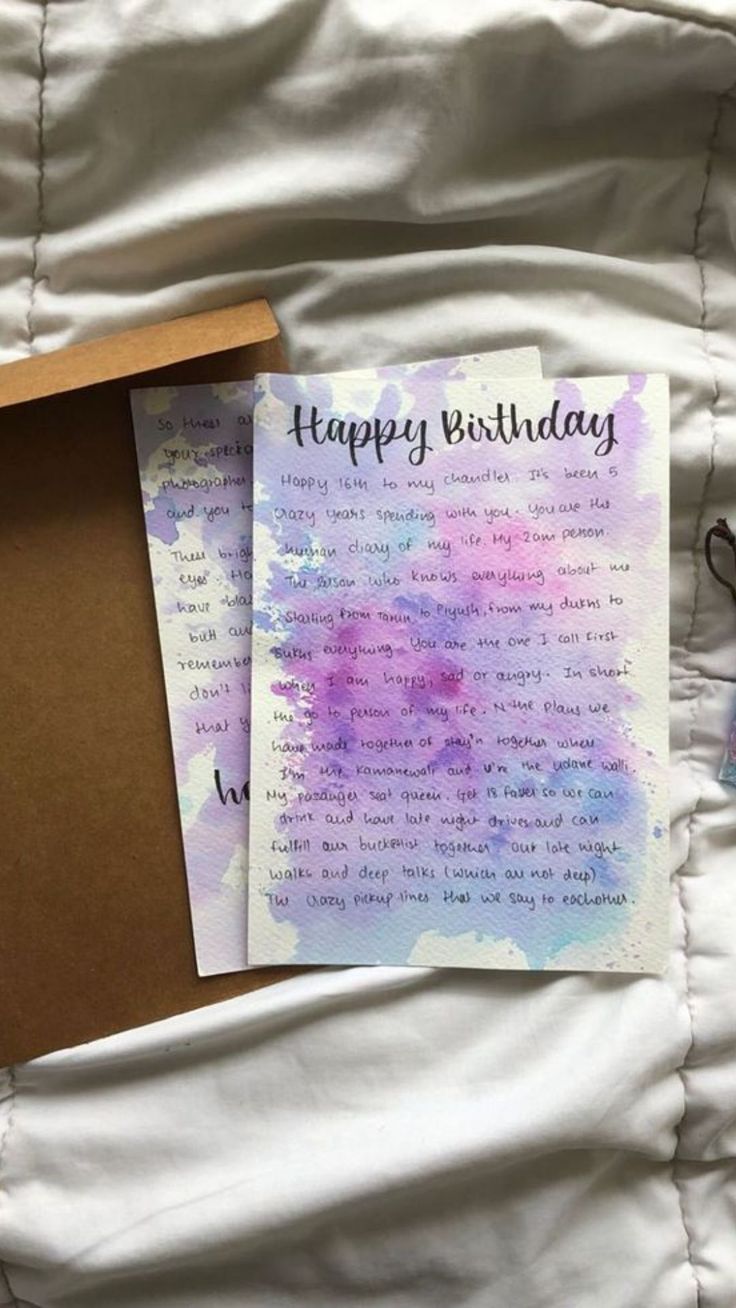 Happy Birthday
Happy 16th to my chandler. It's been 5
crazy years spending with you. You are the
human diary of my life. My 2am person.
The person who knows everything about me
Starting from Tarun to Piyush, from my dukhs to
sukhs everything. You are the one I call first
when I am happy, sad or angry. In short
the go to person of my life. N the plans we
have made together of stay'n together where
I'm the Kamanewali and u're the udane walli.
My passanger seat queen. Get 18 faster so we can
drink and have late night drives and can
fulfill our bucketlist together. Our late night
walks and deep talks (which are not deep)
The crazy pickup lines that we say to eachother.
So these
your
photographer
and you
These brig
eyes.
have
butt
remember
don't
that